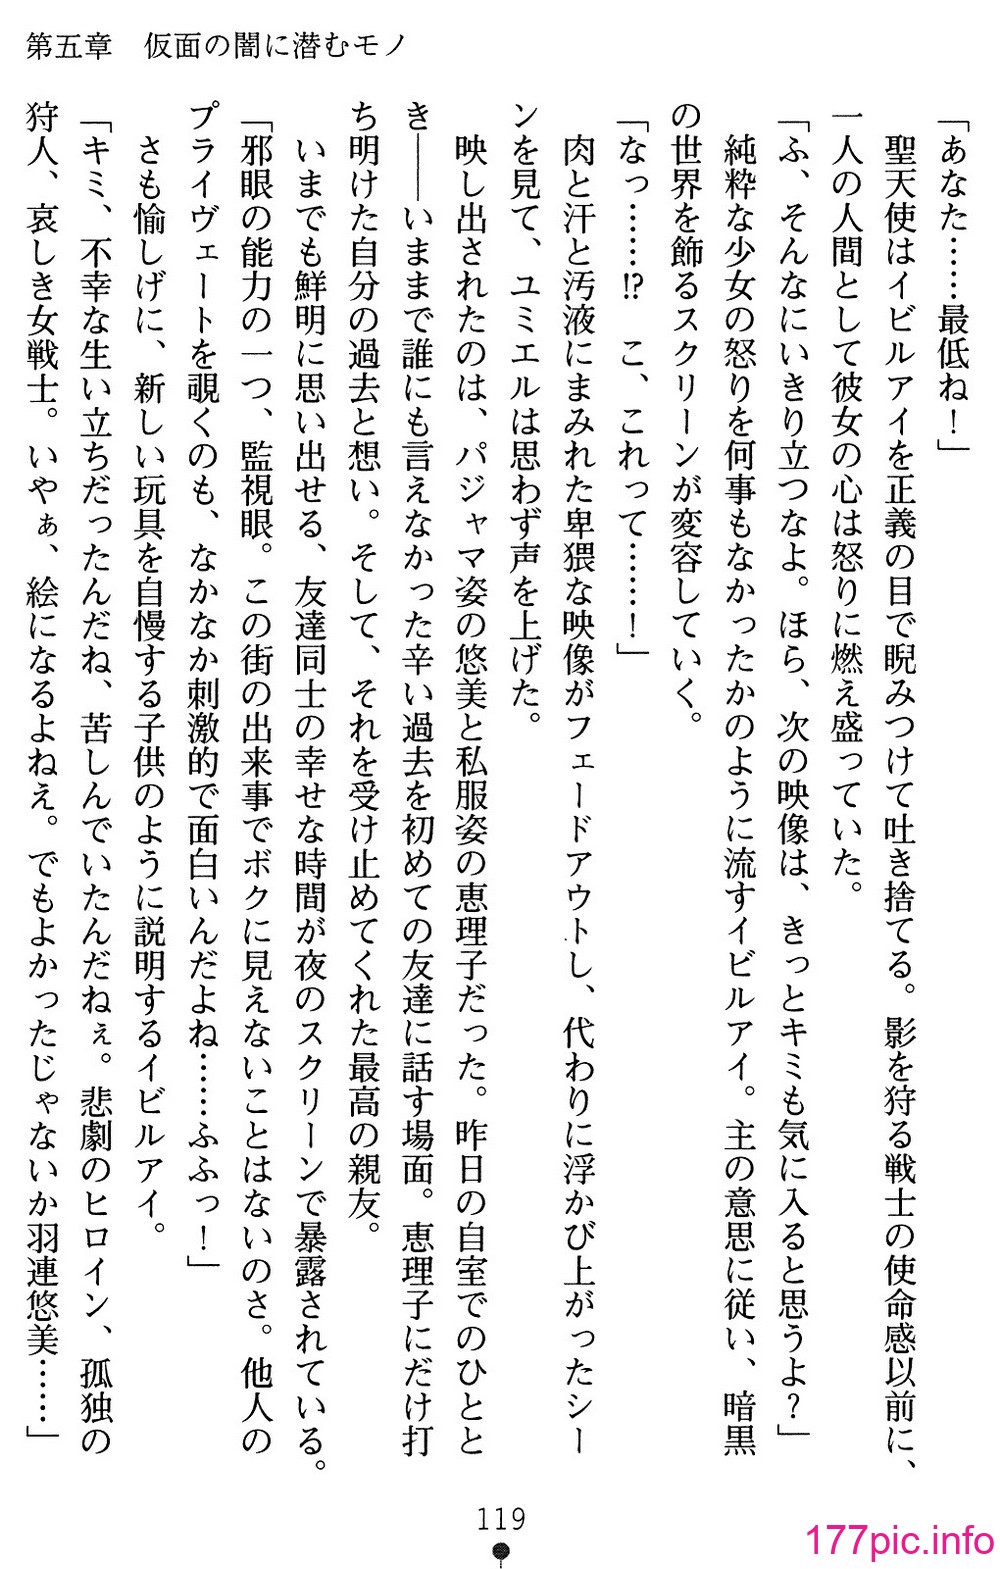 第五章　仮面の闇に潜むモノ
「あなた……最低ね！」
　聖天使はイビルアイを正義の目で睨みつけて吐き捨てる。影を狩る戦士の使命感以前に、
一人の人間として彼女の心は怒りに燃え盛っていた。
「ふ、そんなにいきり立つなよ。ほら、次の映像は、きっとキミも気に入ると思うよ？」
　純粋な少女の怒りを何事もなかったかのように流すイビルアイ。主の意思に従い、暗黒
の世界を飾るスクリーンが変容していく。
「なっ……!?　こ、これって……！」
　肉と汗と汚液にまみれた卑猥な映像がフェードアウトし、代わりに浮かび上がったシー
ンを見て、ユミエルは思わず声を上げた。
　映し出されたのは、パジャマ姿の悠美と私服姿の恵理子だった。昨日の自室でのひとと
き――いままで誰にも言えなかった辛い過去を初めての友達に話す場面。恵理子にだけ打
ち明けた自分の過去と想い。そして、それを受け止めてくれた最高の親友。
　いまでも鮮明に思い出せる、友達同士の幸せな時間が夜のスクリーンで暴露されている。
「邪眼の能力の一つ、監視眼。この街の出来事でボクに見えないことはないのさ。他人の
プライヴェートを覗くのも、なかなか刺激的で面白いんだよね……ふふっ！」
　さも愉しげに、新しい玩具を自慢する子供のように説明するイビルアイ。
「キミ、不幸な生い立ちだったんだね、苦しんでいたんだねぇ。悲劇のヒロイン、孤独の
狩人、哀しき女戦士。いやぁ、絵になるよねえ。でもよかったじゃないか羽連悠美……」
119
177pic.info